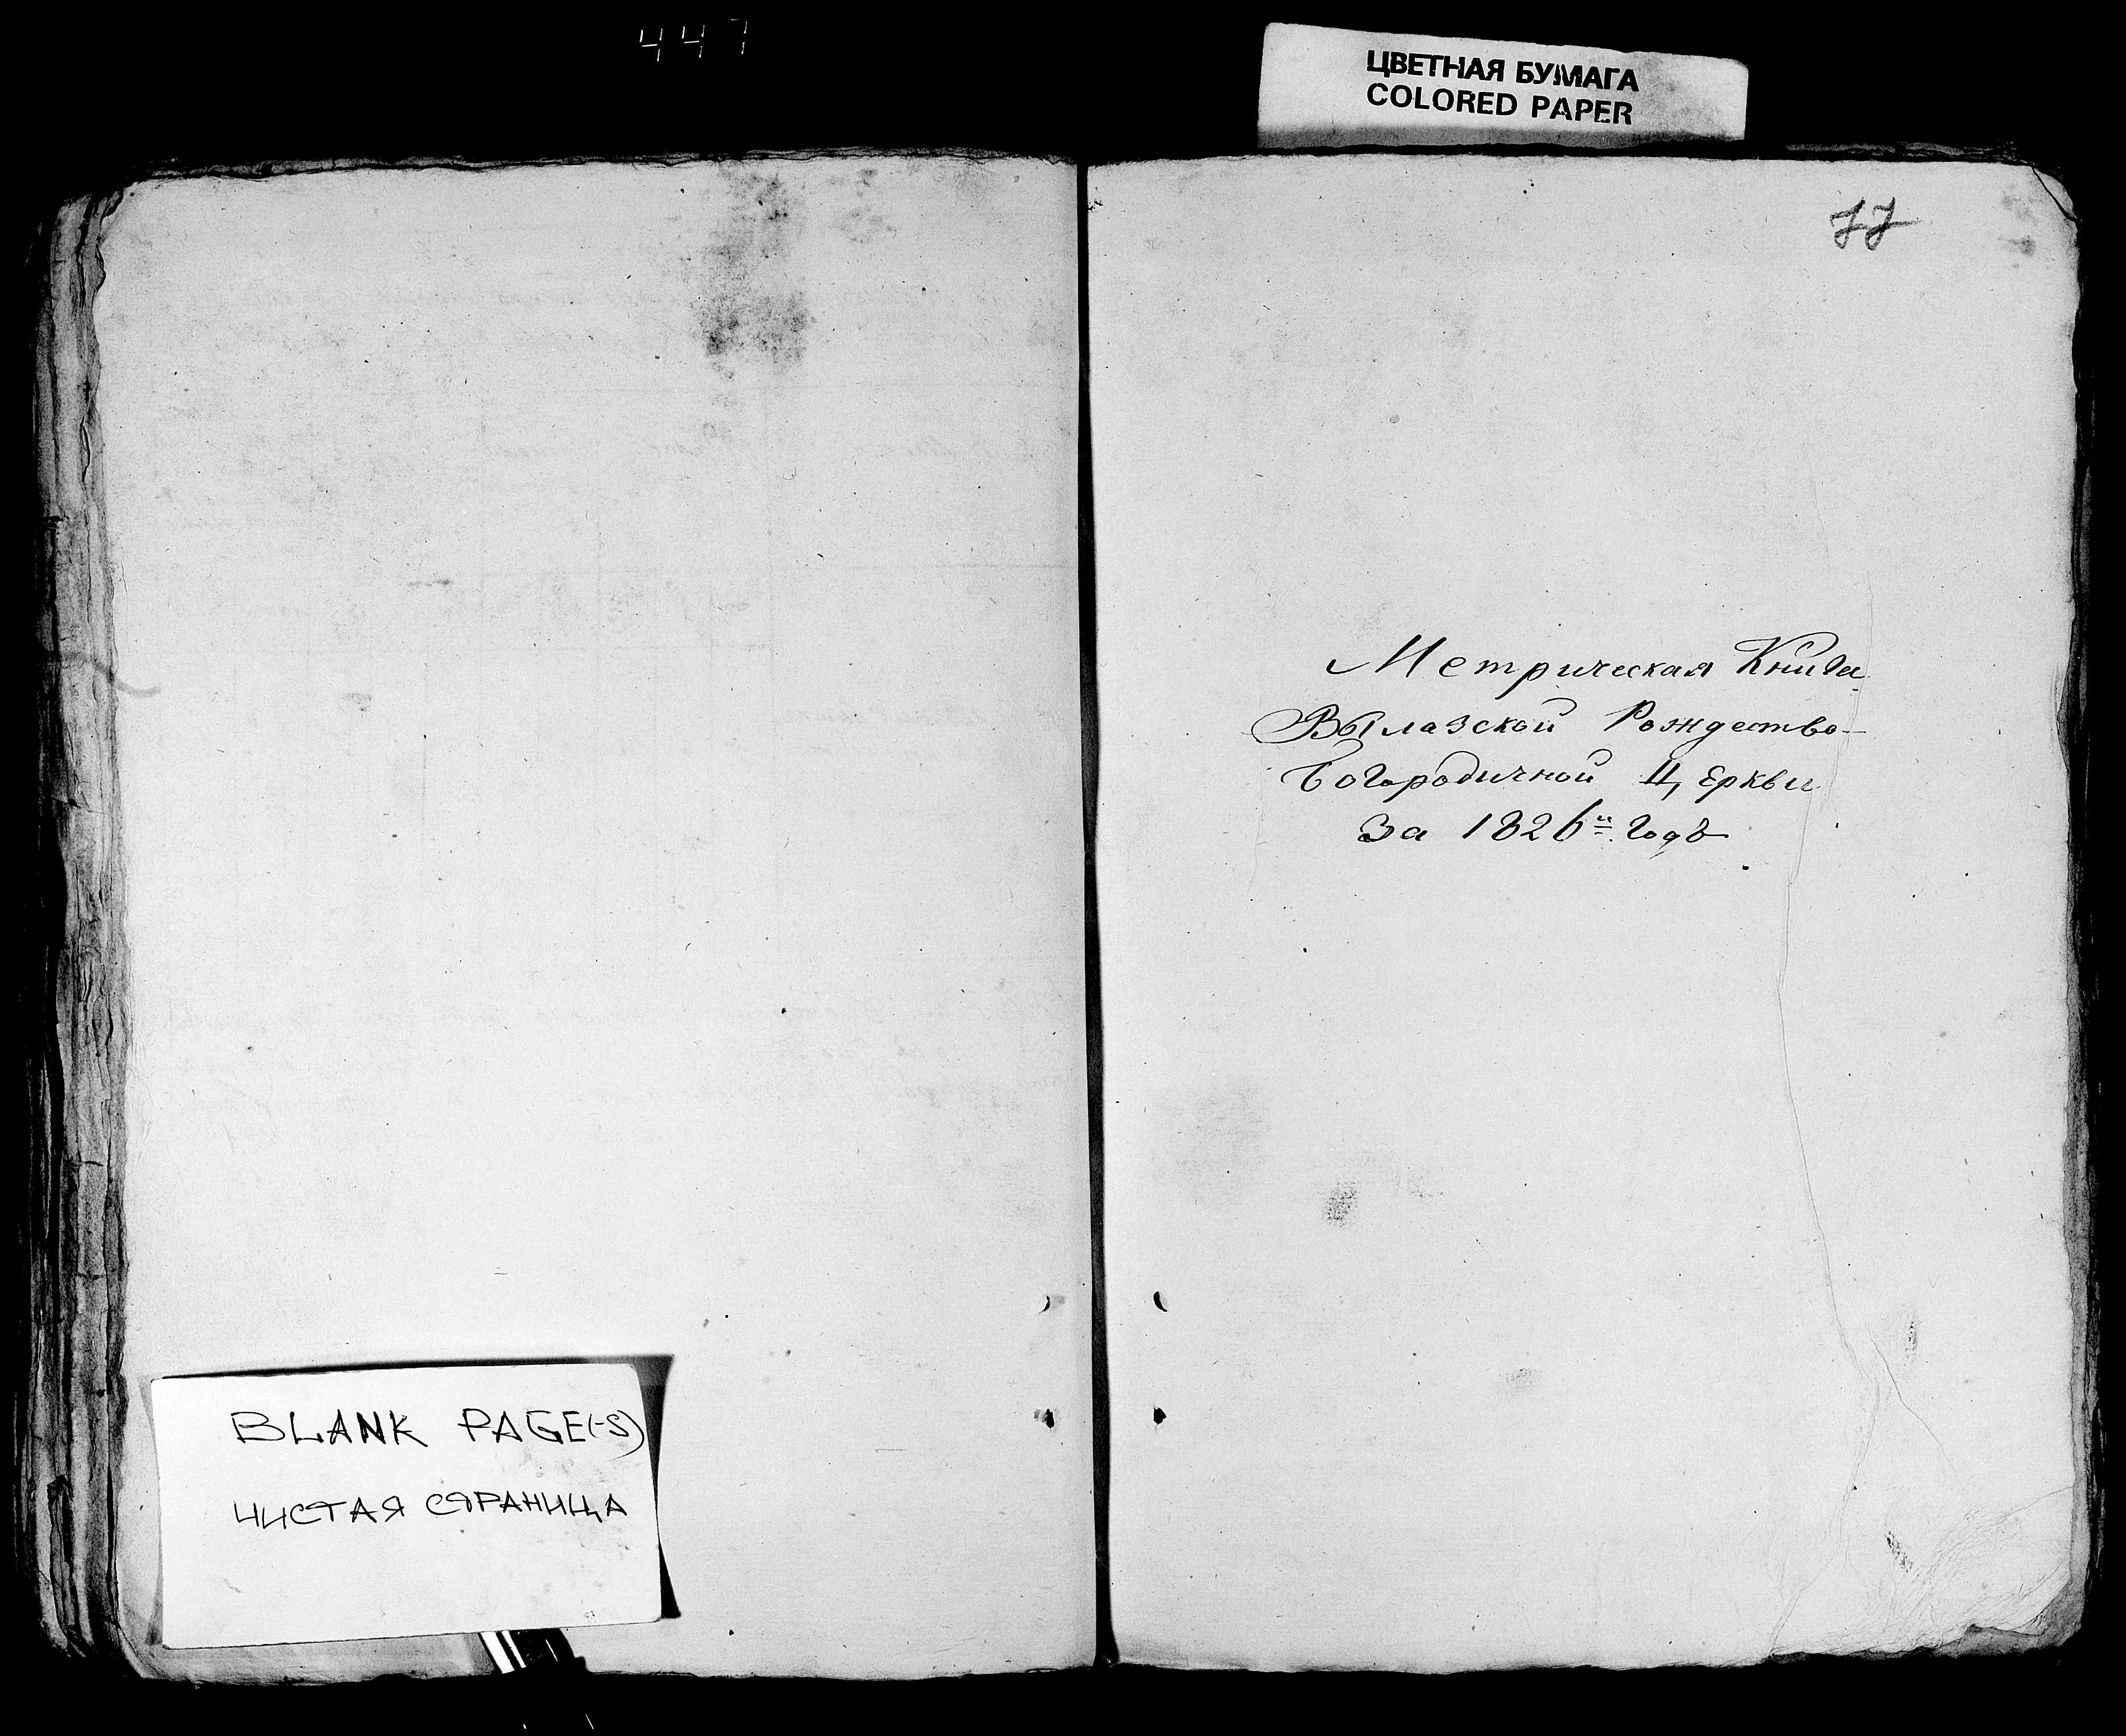 447
ЦВЕТНАЯ БУМАГА
COLORED PAPER
77
Метрическая Книга
Вылазской Рождество-
Богородичной Церкви
За 1826й годъ
BLANK PAGE(-S)
ЧИСТАЯ СТРАНИЦА